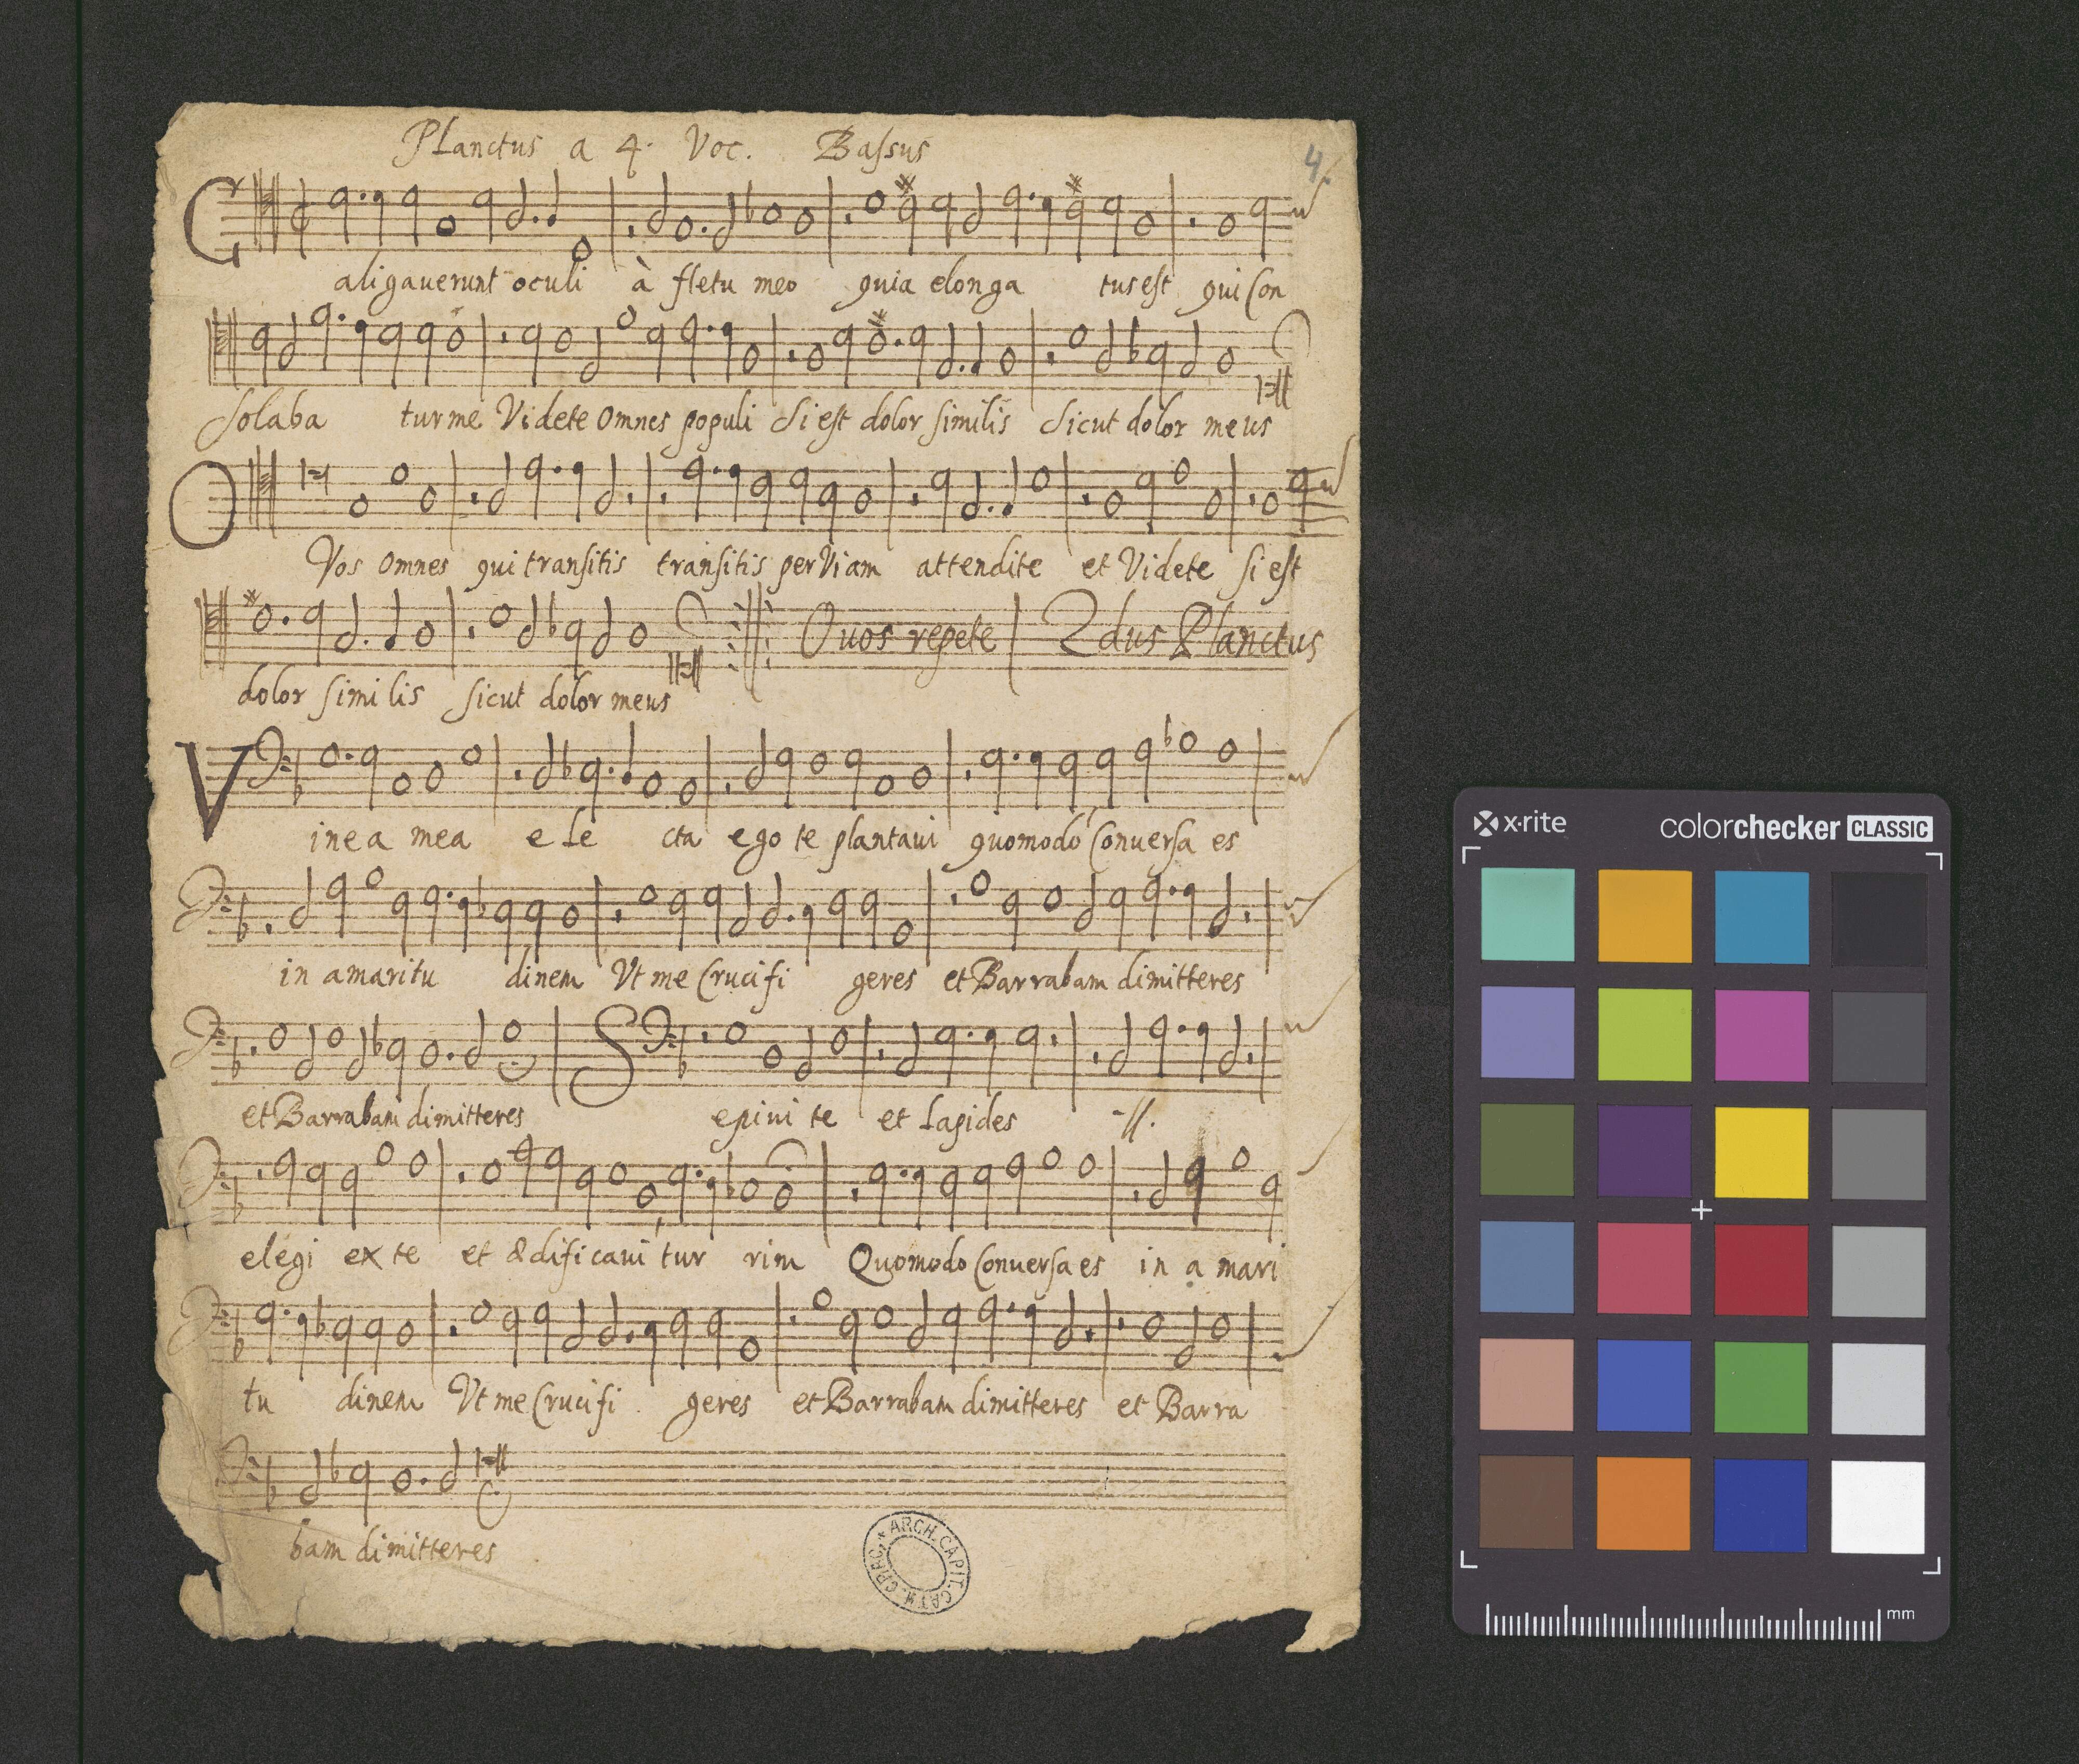 Planctus a 4. Voc. Bassus
4.
Caligaverunt oculi à fletu meo quia elonga tus est qui Con
Solaba tur me Videte omnes populi Si est dolor similis Sicut dolor meus
O Vos omnes qui transitis transitis per Viam attendite et Videte si est
O vos repete 2dus Planctus
dolor simi lis sicut dolor meus
Vinea mea e le cta ego te plantavi quomodo Conversa es
in amaritu dinem Vt me Crucifi geres et Barrabam dimitteres
et Barrabam dimitteres Sepivi te et Lapides -//.
elegi ex te et ædificavi tur rim Quomodo Conversa es in a mari
tu dinem Vt me Crucifi geres et Barrabam dimitteres et Barra
bam dimitteres
ARCH. CAPIT. CATH. CRAC.
x·rite colorchecker CLASSIC
mm